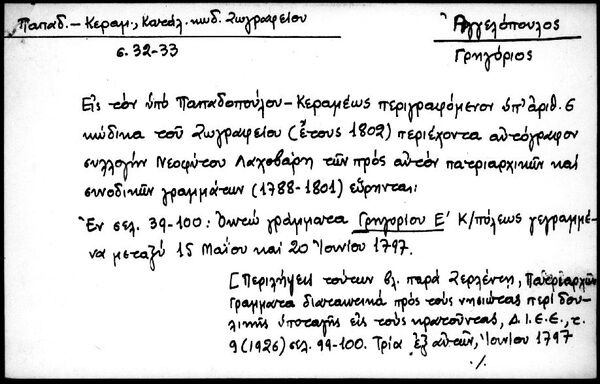 Παπαδ.-Κεραμ., Κατάλ. κωδ. Ζωγραφείου
Ἀγγελόπουλος
σ. 32-33
Γρηγόριος
Εἰς τὸν ὑπὸ Παπαδοπούλου-Κεραμέως περιγραφόμενον ὑπ' ἀριθ. 6
κώδικα τοῦ Ζωγραφείου (ἔτους 1802) περιέχοντα αὐτόγραφον
συλλογὴν Νεοφύτου Λαχοβάρη τῶν πρὸς αὐτὸν πατριαρχικῶν καὶ
συνοδικῶν γραμμάτων (1788-1801) εὕρηνται:
Ἐν σελ. 39-100: Ὀκτὼ γράμματα Γρηγορίου Ε' Κ/πόλεως γεγραμμέ-
να μεταξὺ 15 Μαΐου καὶ 20 Ἰουνίου 1797.
[Περιλήψεις τούτων βλ. παρὰ Ζερλέντῃ, Πατριαρχῶν
γράμματα διατακτικὰ πρὸς τοὺς νησιώτας περὶ δου-
λικῆς ὑποταγῆς εἰς τοὺς κρατοῦντας, Δ.Ι.Ε.Ε., τ.
9 (1926) σελ. 99-100. Τρία ἐξ αὐτῶν, Ἰουνίου 1797
./.